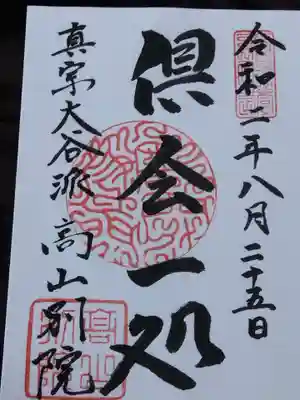 令和二年八月二十五日
倶会一処
真宗大谷派 高山別院